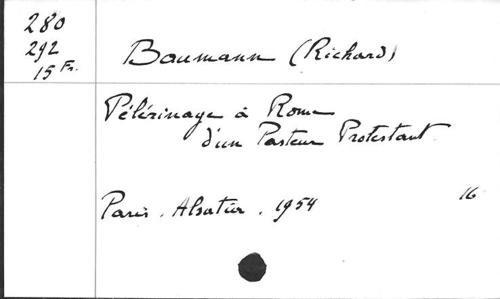 280
292
15 Fr.
Baumann (Richard)
Pélérinage à Rome
d'un Pasteur Protestant
Paris. Alsatia. 1954
16